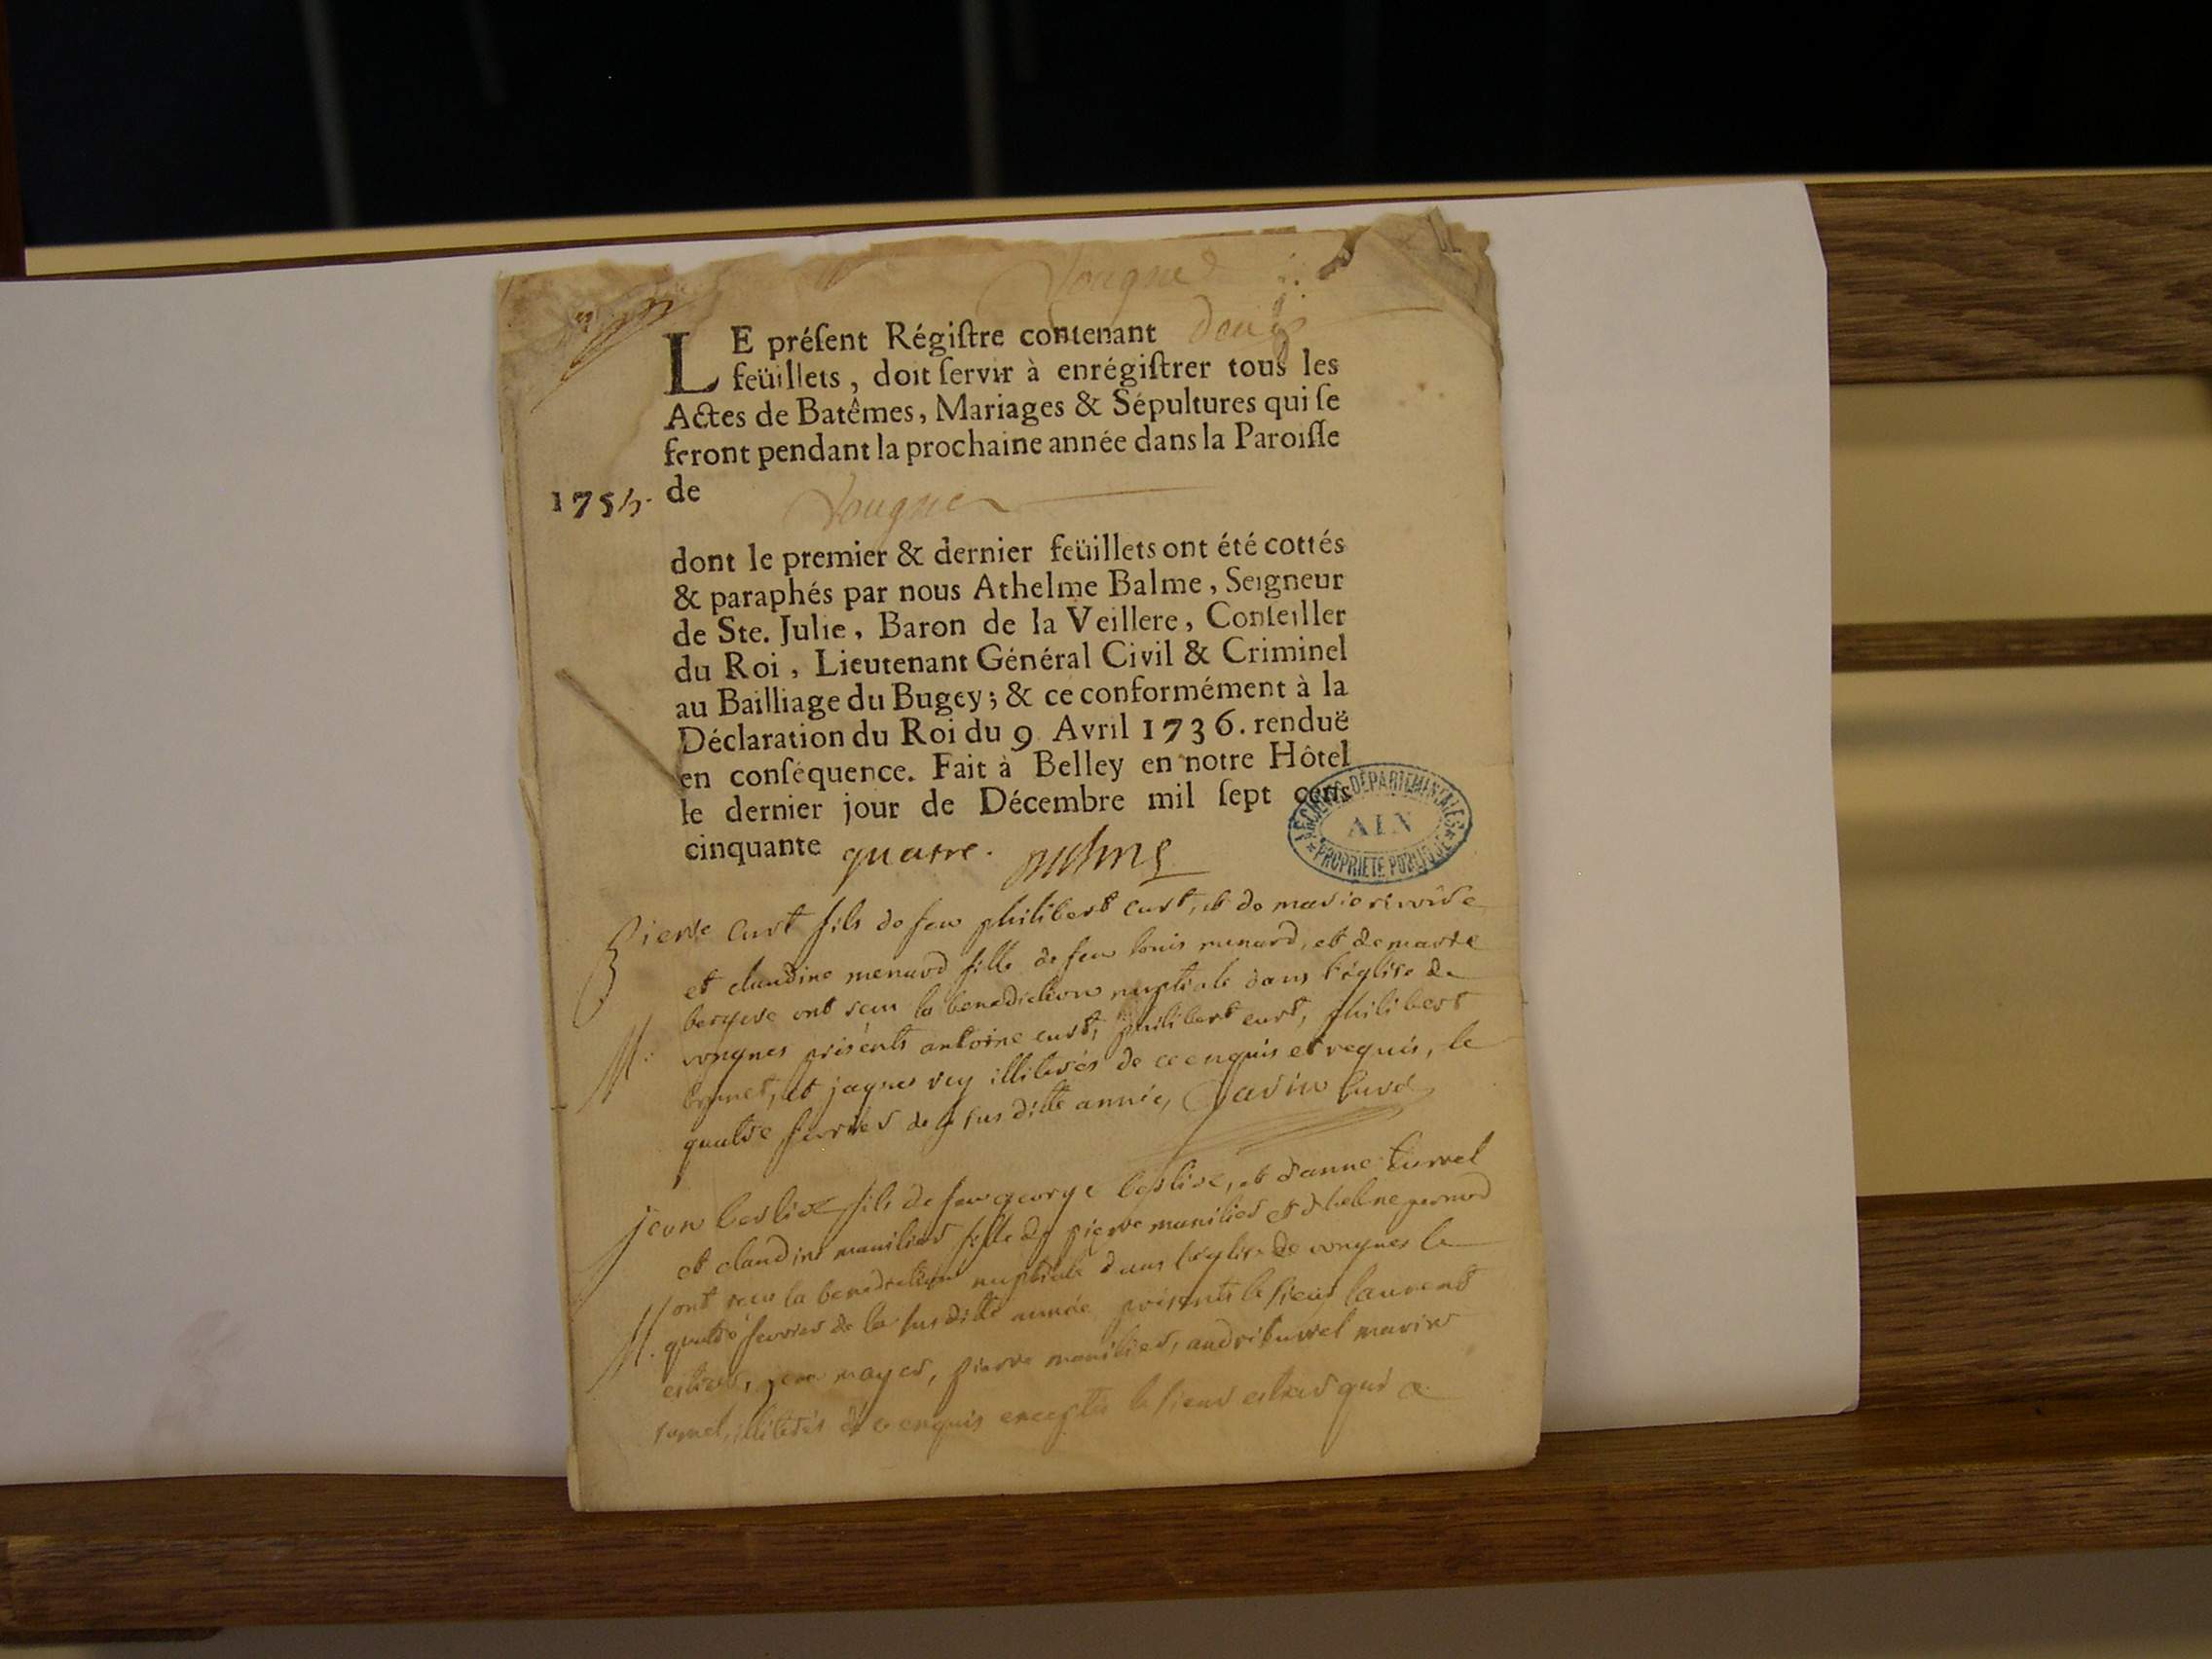 Vongne
LE présent Régistre contenant
feüillets, doit servir à enrégistrer tous les
Actes de Batêmes, Mariages & Sépultures qui se
feront pendant la prochaine année dans la Paroisse
1755. de Vongne
dont le premier & dernier feüillets ont été cottés
& paraphés par nous Athelme Balme, Seigneur
de Ste. Julie, Baron de la Veillere, Conseiller
du Roi, Lieutenant Général Civil & Criminel
au Bailliage du Bugey; & ce conformément à la
Déclaration du Roi du 9 Avril 1736. renduë
en conséquence. Fait à Belley en notre Hôtel
le dernier jour de Décembre mil sept cens
cinquante quatre.
ARCHIVES DÉPARTEMENTALES
AIN
PROPRIÉTÉ PUBLIQUE
Pierre Curt fils de feu philibert curt, et de marie
et claudine menard fille de feu louis menard, et de marie
bergere ont receu la benediction nuptiale dans l'église de
vongnes présents antoine curt, philibert curt, philibert
et jaques rey illiterés de ce enquis et requis, le
quatre fevrier de la susditte année, Savin Curé
jean berlier fils de feu george berlier, et d'anne turrel
et claudine manilier fille de pierre manilier et d'helene
ont receu la benediction nuptiale dans l'eglise de vongnes le
quatre fevrier de la susditte année présents le sieur laurent
jean mayer, pierre manilier, andré turrel marin
illiterés de ce enquis excepté le sieur qui a